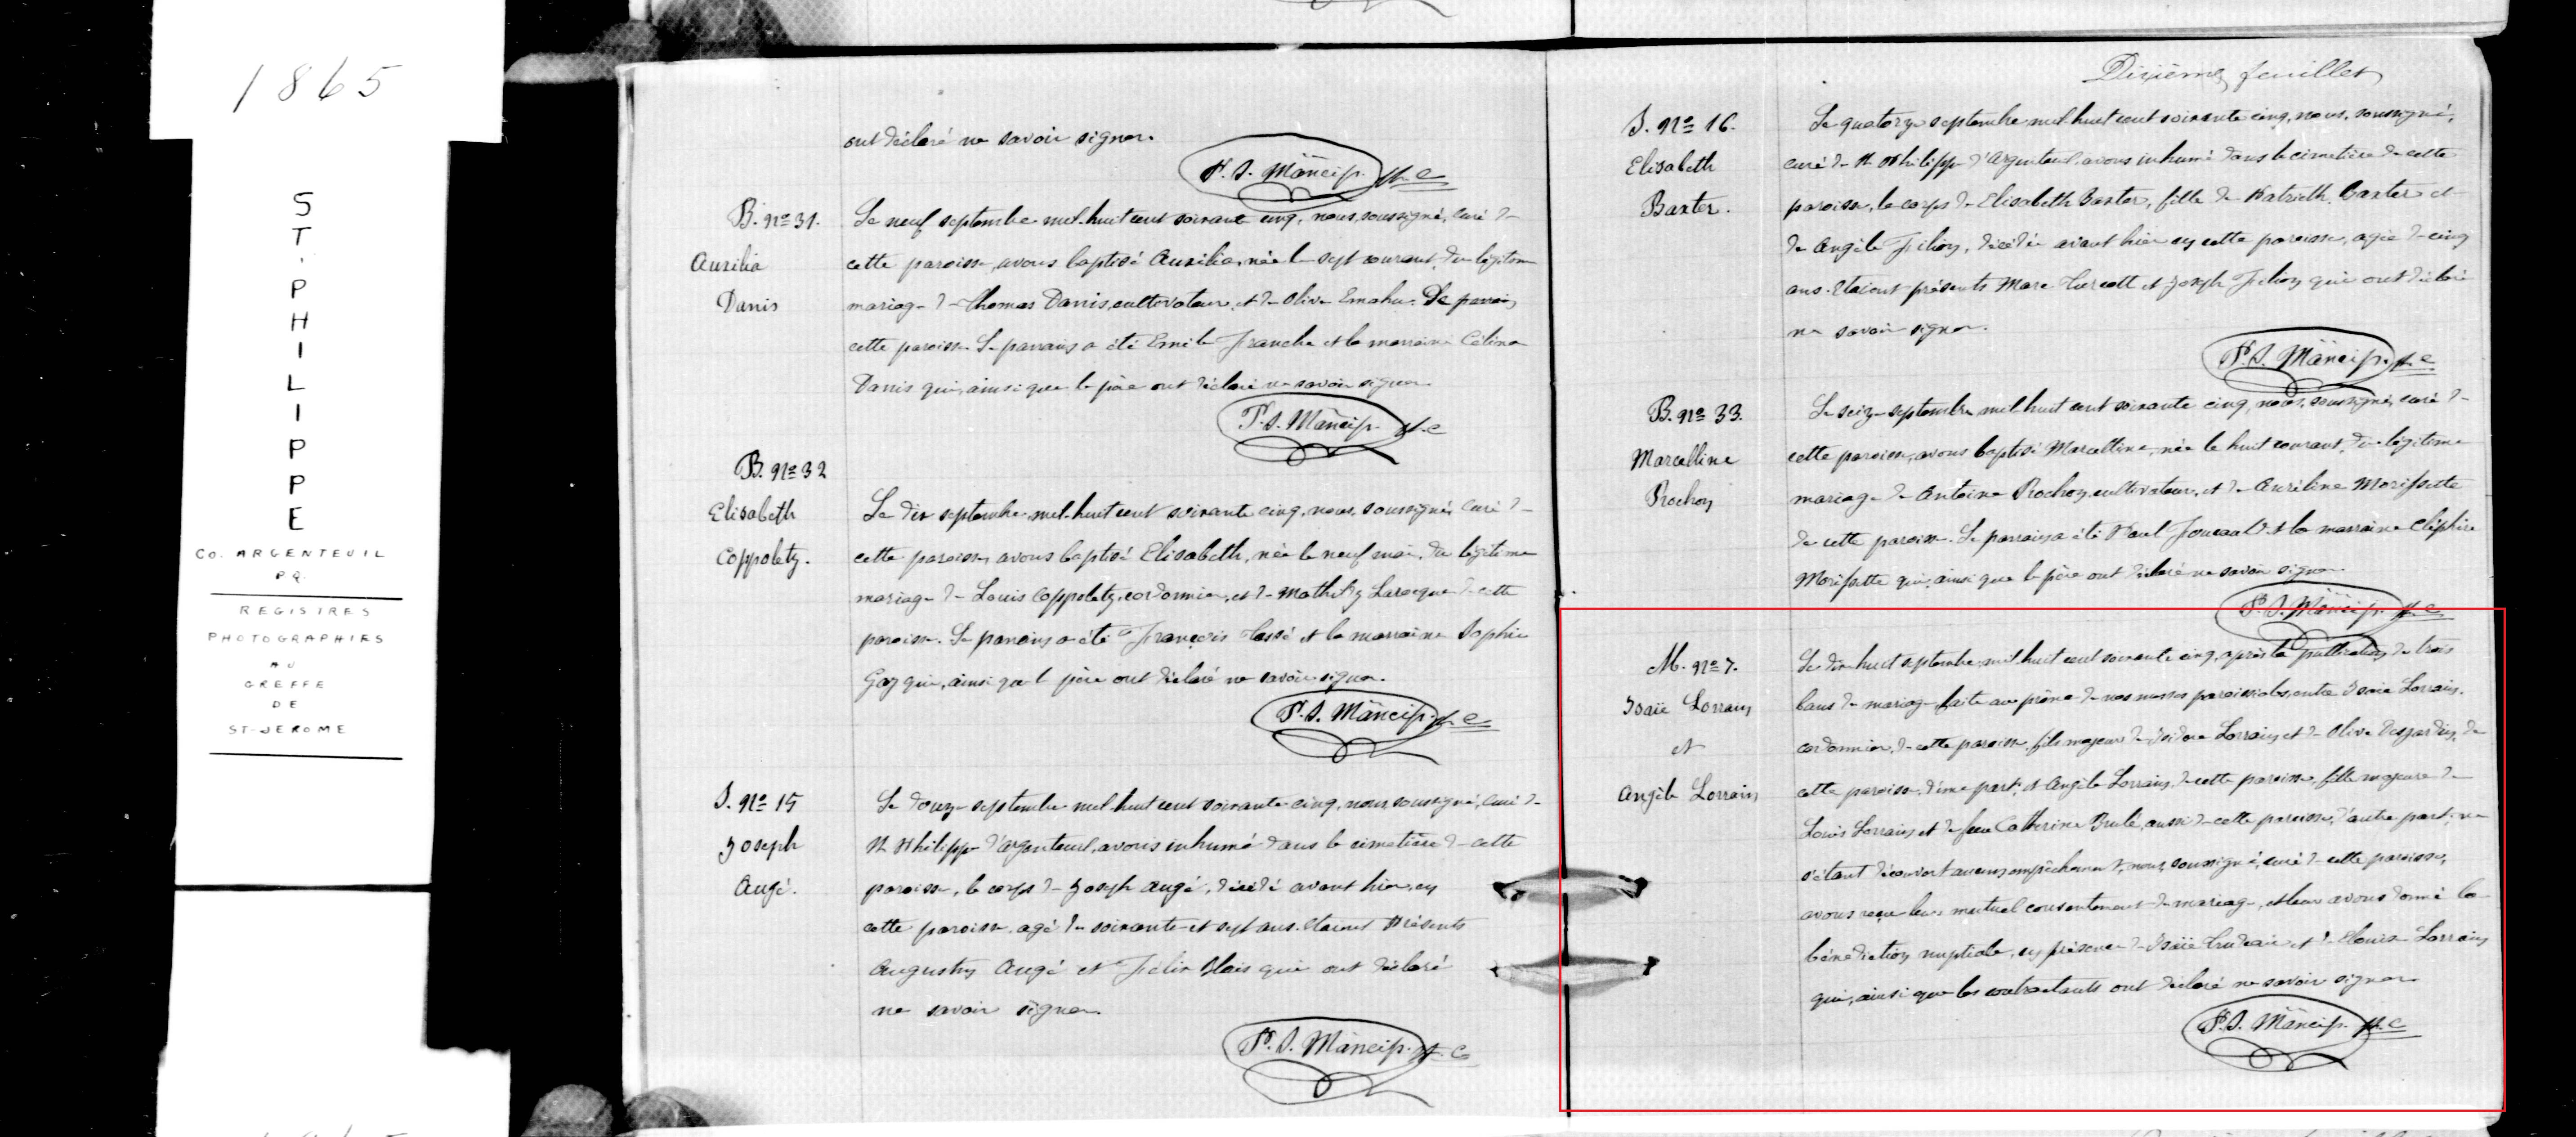 1865
ST. PHILIPPE
CO. ARGENTEUIL
PQ.
REGISTRES
PHOTOGRAPHIES
AU
GREFFE
DE
ST-JEROME
ont déclaré ne savoir signer.
P. S. Mäncip. Ptre C
B. No 31.
Aurilia
Danis
Le neuf septembre mil-huit cent soixante cinq, nous, soussigné, curé de
cette paroisse, avons baptisé Aurilia, née le sept courant, du légitime
mariage de Thomas Danis, cultivateur, et de Olive Emahu. De parrain
cette paroisse. Le parrain a été Emile Franche et la marraine Célina
Danis qui, ainsi que le père ont déclaré ne savoir signer.
P. S. Mäncip. Ptre C
B. No 32
Elisabeth
Coppolety.
Le dix septembre mil-huit cent soixante cinq, nous, soussigné, curé de
cette paroisse, avons baptisé Elisabeth, née le neuf mai, du légitime
mariage de Louis Coppolety, cordonnier, et de Mathildy Larocque de cette
paroisse. Le parrain a été François Tassé et la marraine Sophie
Gay qui, ainsi que l père ont déclaré ne savoir signer.
P. S. Mäncip. Ptre C
S. No 15
Joseph
Augé.
Le douze septembre mil-huit cent soixante cinq, nous, soussigné, curé de
St Philippe d'Argenteuil, avons inhumé dans le cimetière de cette
paroisse, le corps de Joseph Augé, décédé avant hier, en
cette paroisse, agé de soixante et sept ans. Etaient Présents
Augustin Augé et Félix Blais qui ont déclaré
ne savoir signer.
P. S. Mäncip. Ptre C
Dixième feuillet
S. No 16.
Elisabeth
Baxter.
Le quatorze septembre mil-huit cent soixante cinq, nous, soussigné,
curé de St Philippe d'Argenteuil, avons inhumé dans le cimetière de cette
paroisse, le corps de Elisabeth Baxter, fille de Patrick Baxter et
de Angèle Filion, décédée avant hier en cette paroisse, agée de cinq
ans. Etaient présents Marc Turcott et Joseph Filion qui ont déclaré
ne savoir signer.
P. S. Mäncip. Ptre C
B. No 33.
Marcelline
Rochon
Le seize septembre mil-huit cent soixante cinq, nous, soussigné, curé de
cette paroisse, avons baptisé Marcelline, née le huit courant, du légitime
mariage de Antoine Rochon, cultivateur, et de Auréline Morissette
de cette paroisse. Le parrain a été Paul Joucault et la marraine Eléphire
Morissette qui, ainsi que le père ont déclaré ne savoir signer.
P. S. Mäncip. Ptre C
M. No 7.
Isaïe Lorrain
et
Angèle Lorrain
Le dix huit septembre mil huit cent soixante cinq, après la publication de trois
bans de mariage faite au prône de nos messes paroissiales, entre Isaïe Lorrain,
cordonnier, de cette paroisse, fils majeur de Isidore Lorrain et de Olive Desjardins, de
cette paroisse, d'une part; et Angèle Lorrain, de cette paroisse, fille majeure de
Louis Lorrain et de feue Catherine Brulé, aussi de cette paroisse, d'autre part; ne
s'étant découvert aucun empêchement, nous, soussigné, curé de cette paroisse,
avons reçu leur mutuel consentement de mariage, et leur avons donné la
bénédiction nuptiale, en présence de Isaïe Trudeau et de Elouis Lorrain
qui, ainsi que les contractants ont déclaré ne savoir signer.
P. S. Mäncip. Ptre C